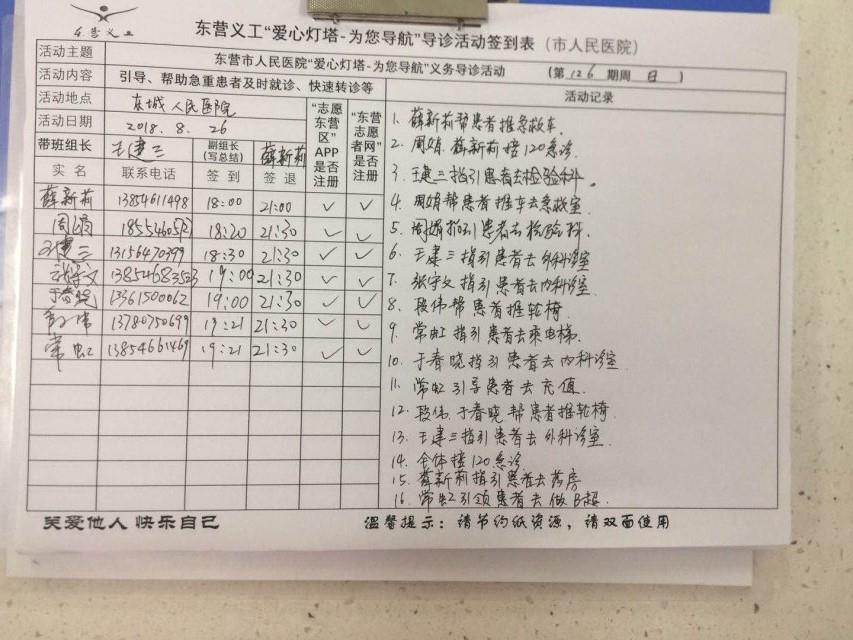 东营义工
东营义工“爱心灯塔-为您导航”导诊活动签到表（市人民医院）
活动主题 东营市人民医院“爱心灯塔-为您导航”义务导诊活动 （第 126 期周 日 ）
活动内容 引导、帮助急重患者及时就诊、快速转诊等 活动记录
活动地点 东城人民医院
活动日期 2018.8.26
带班组长 王建三 副组长（写总结） 薛新莉 “志愿东营区”APP是否注册 “东营志愿者网”是否注册
实名 联系电话 签到 签退
薛新莉 13854611498 18:00 21:00 ✓ ✓
周娟 18:20 21:30 ✓ ✓
王建三 13156470399 18:30 21:30 ✓ ✓
张守文 19:00 21:30 ✓ ✓
于春晓 13361500062 19:00 21:30 ✓ ✓
段伟 13780750699 19:21 21:30 ✓ ✓
常虹 13854661469 19:21 21:30 ✓ ✓
1. 薛新莉帮患者推急救车.
2. 周娟.薛新莉接120急诊.
3. 王建三指引患者去检验科.
4. 周娟帮患者推车去急救室.
5. 周娟指引患者去检验科.
6. 王建三指引患者去外科诊室
7. 张守文指引患者去内科诊室.
8. 段伟帮患者推轮椅.
9. 常虹指引患者去乘电梯.
10. 于春晓指引患者去内科诊室
11. 常虹引导患者去充值.
12. 段伟.于春晓帮患者推轮椅.
13. 王建三指引患者去外科诊室.
14. 全体接120急诊
15. 薛新莉指引患者去药房
16. 常虹引领患者去做B超.
关爱他人 快乐自己 温馨提示：请节约纸资源，请双面使用